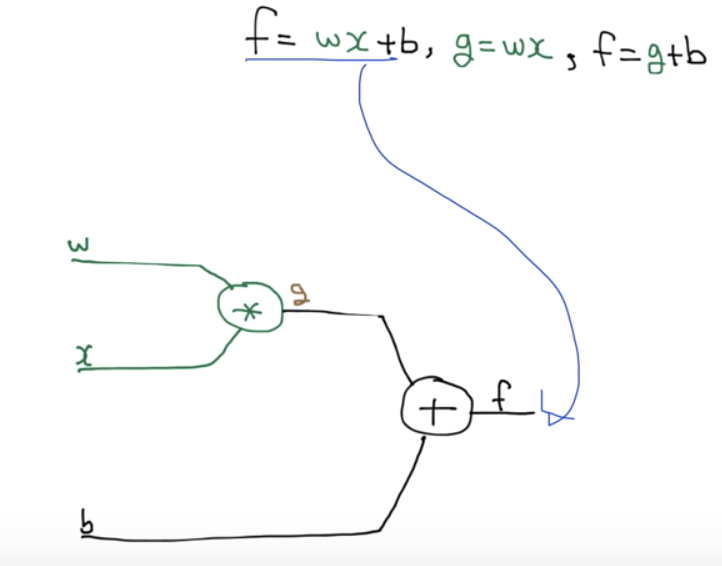 f = wx + b, g = wx, f = g + b
w
*
g
x
+
f
b